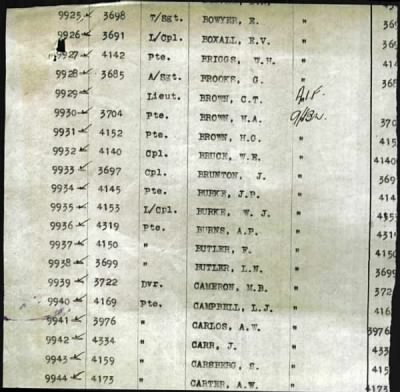 9925 3698 T/Sgt. BOWYER, E. "
9926 3691 L/Cpl. BOXALL, E.V. "
9927 4142 Pte. BRIGGS, W.H. "
9928 3685 A/Sgt. BROOKE, G. "
9929 Lieut. BROWN, C.T.
9930 3704 Pte. BROWN, H.A. "
9931 4152 Pte. BROWN, H.G. "
9932 4140 Cpl. BRUCK, W.E. " 4140
9933 3697 Cpl. BRUNTON, J. "
9934 4145 Pte. BURKE, J.P. "
9935 4153 L/Cpl. BURKE, W. J. "
9936 4319 Pte. BURNS, A.P. "
9937 4150 " BUTLER, F. "
9938 3699 " BUTLER, L.N. "
9939 3722 Dvr. CAMERON, M.B. "
9940 4169 Pte. CAMPBELL, L.J. "
9941 3976 " CARLOS, A.W. " 3976
9942 4334 " CARR, J. "
9943 4159 " CARSBERG, S. "
9944 4173 " CARTER, A.W. " 4173